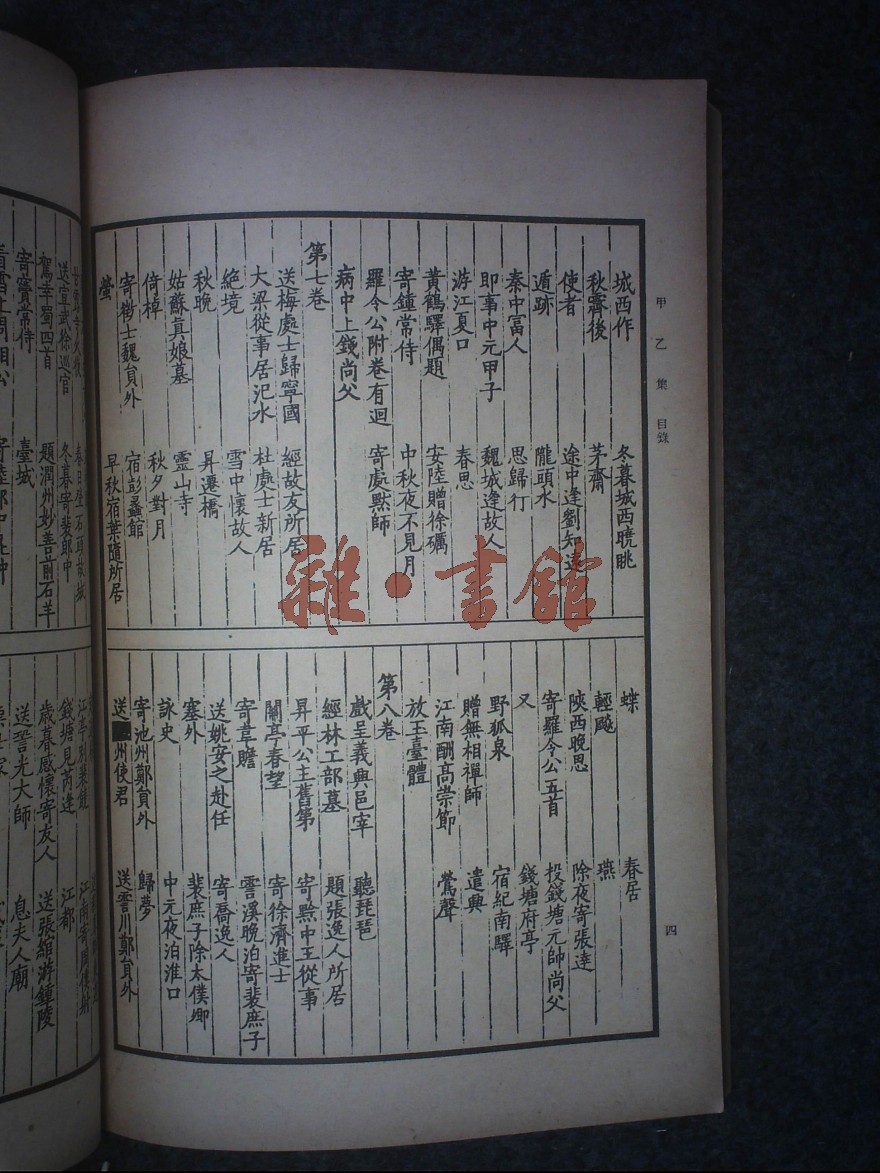 甲乙集 目錄
四
城西作 冬暮城西晚眺
秋霽後 茅齋
使者 途中逢劉知遠
遁跡 隴頭水
秦中富人 思歸行
即事中元甲子 魏城逢故人
游江夏口 春思
黃鶴驛偶題 安陸贈徐礪
寄鍾常侍 中秋夜不見月
羅令公附卷有迴 寄處默師
病中上錢尚父
第七卷
送梅處士歸寧國 經故友所居
大梁從事居汜水 杜處士新居
絕境 雪中懷故人
秋晚 昇遷橋
姑蘇真娘墓 靈山寺
倚棹 秋夕對月
寄徵士魏員外 宿彭蠡館
螢 早秋宿葉隨所居
蝶 春居
輕飇 燕
陝西晚思 除夜寄張逹
寄羅令公五首 投錢塘元帥尚父
又 錢塘府亭
野狐泉 宿紀南驛
贈無相禪師 遣興
江南酬高崇節 鶯聲
放玉臺體
第八卷
戲呈義興邑宰 聽琵琶
經林工部墓 題張逸人所居
昇平公主舊第 寄黔中王從事
蘭亭春望 寄徐濟進士
寄韋贍 霅溪晚泊寄裴庶子
送姚安之赴任 寄喬逸人
塞外 裴庶子除太僕卿
詠史 中元夜泊淮口
寄池州鄭員外 歸夢
送 州使君 送霅川鄭員外
送宣武徐巡官 冬暮寄裴郎中
駕幸蜀四首 題潤州妙善前石羊
寄竇常侍 臺城
錢塘見芮逢 江都
歲暮感懷寄友人 送張綰游鍾陵
送䛒光大師 息夫人廟
雜·書館